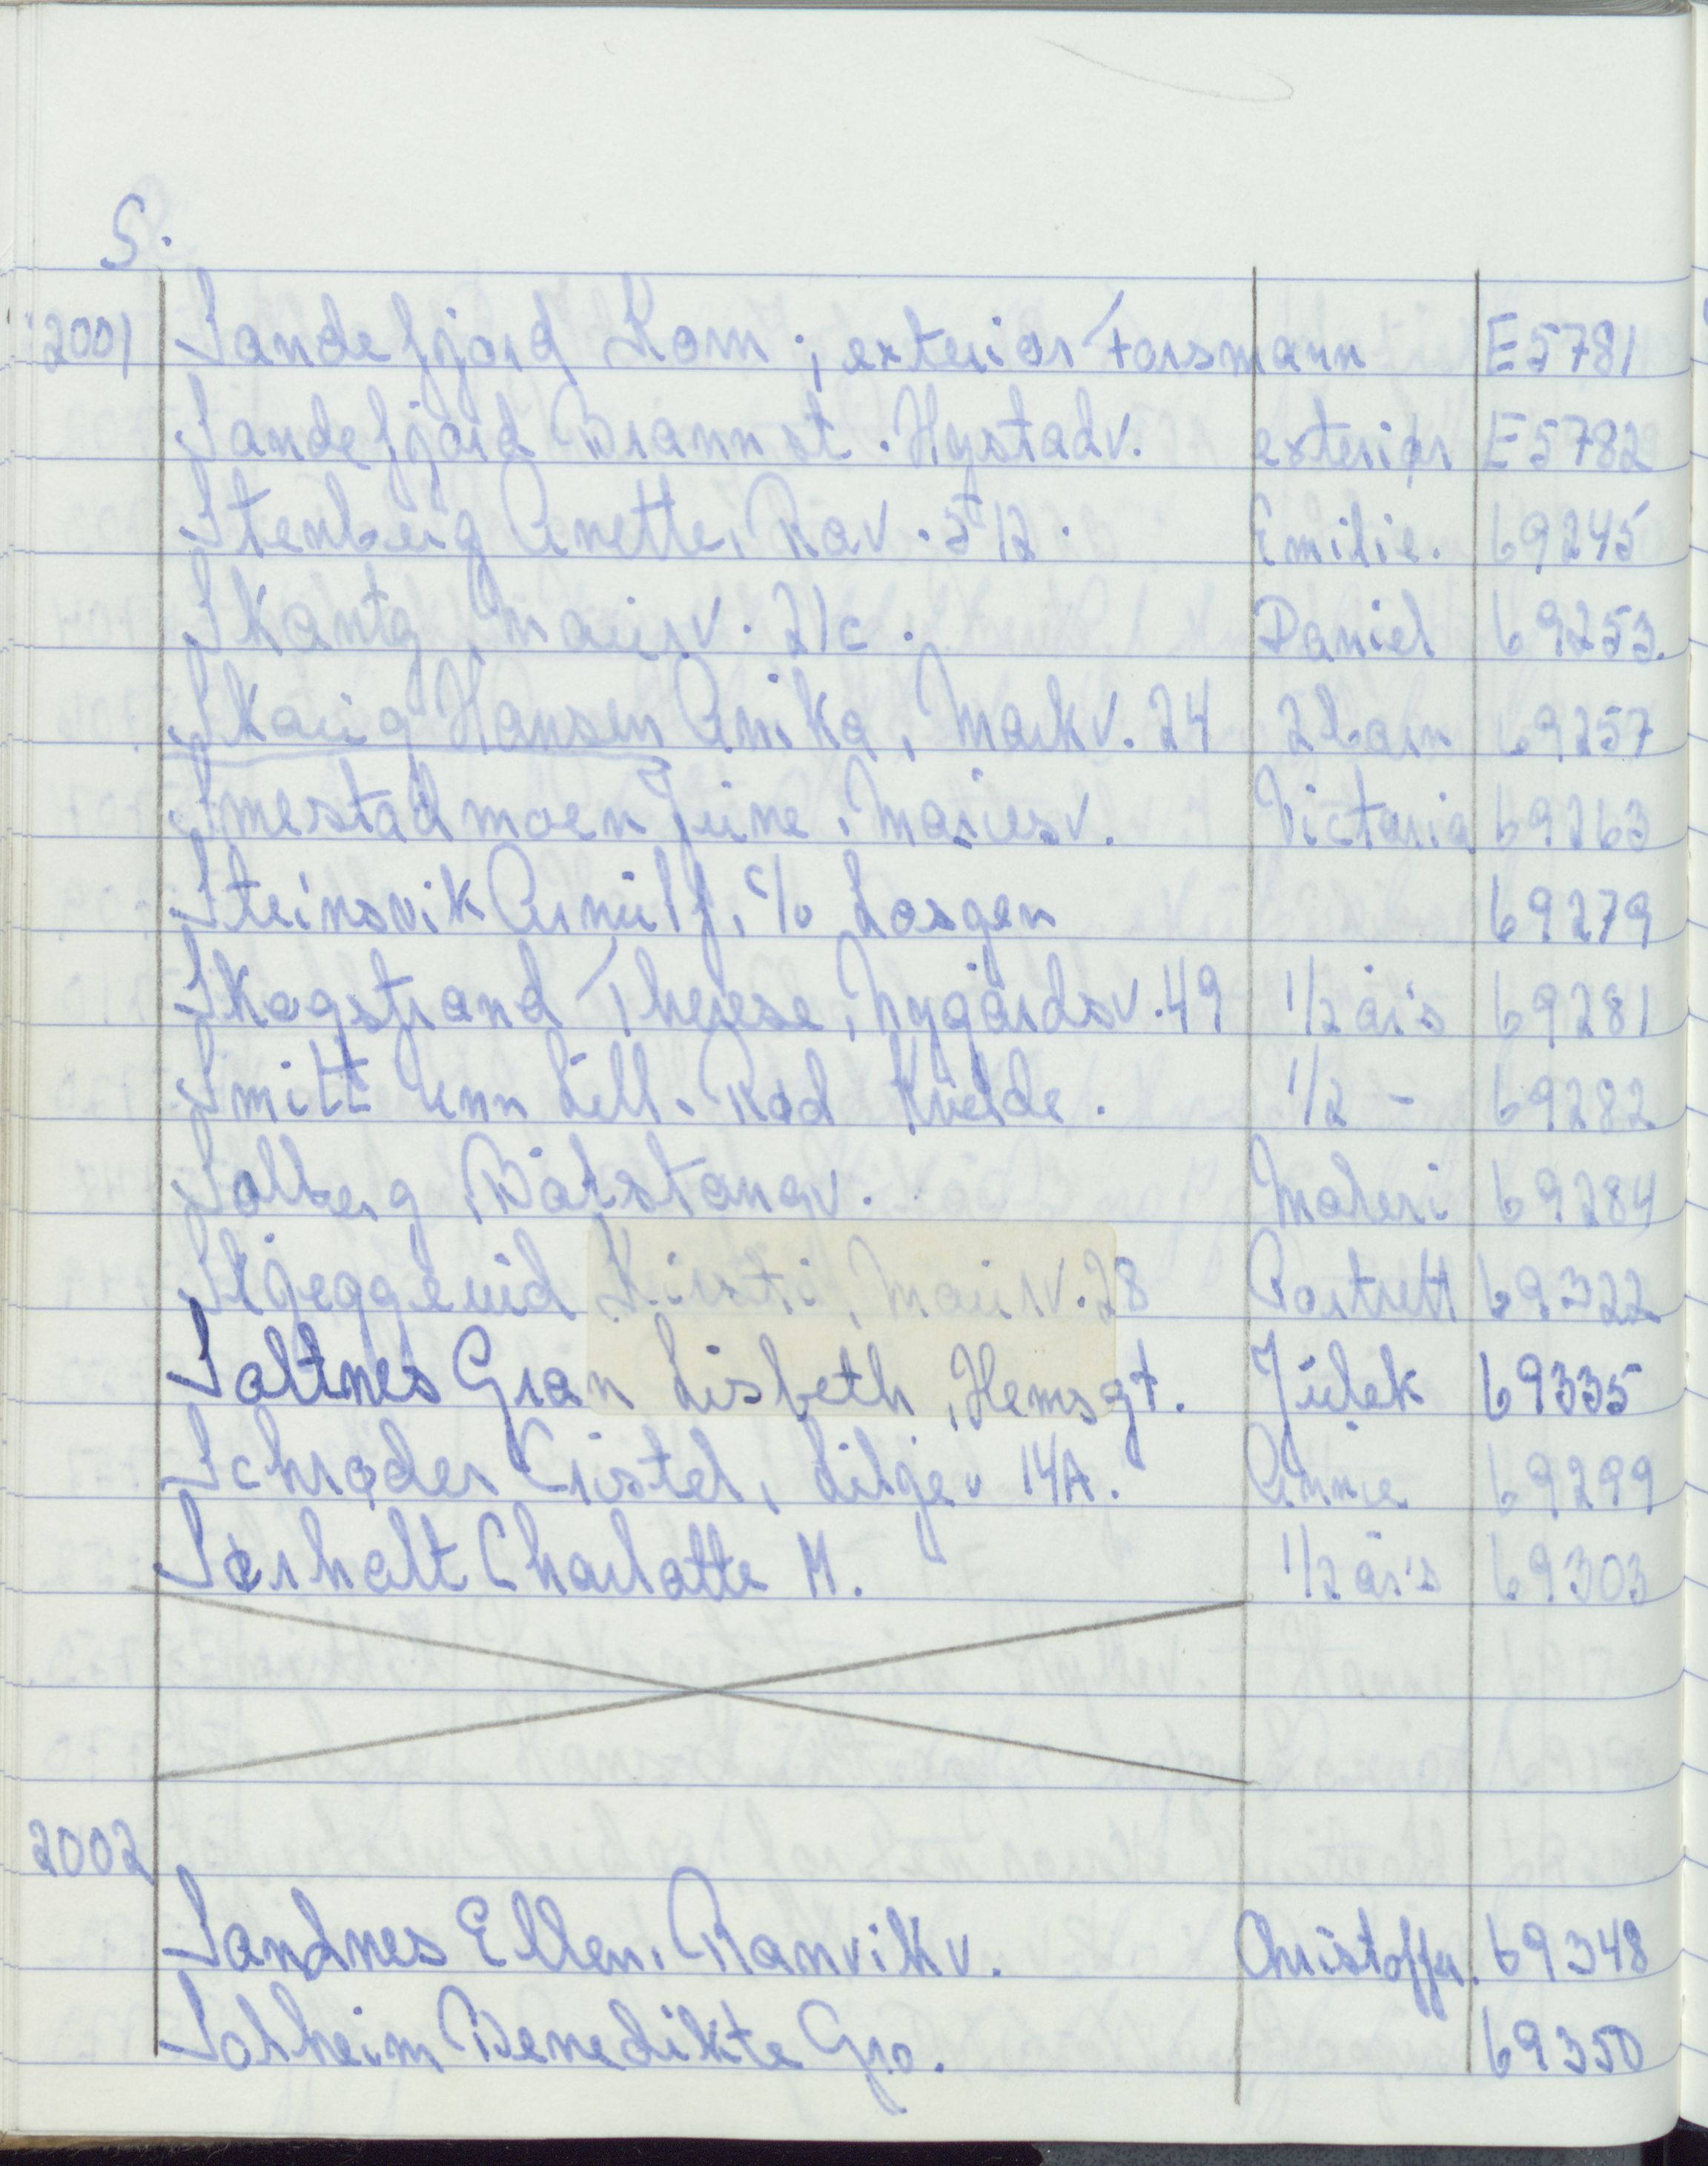 S.
2001 Sandefjord Kom; exteriør Forsmann E5781
Sandefjord Brannst. Hystadv. exteriør E5782
Stenberg Anette, Rav. 512. Emilie. 69245
Skantz, 21c. Daniel 69253.
Skaug Hansen Anika, Markv. 24 2 barn 69257
Smestadmoen June, Mariesv. Victoria 69263
Steinsvik Arnulf, c/o Losgen 69279
Skogstrand Therese, Nygårdsv. 49 1/2 års 69281
Smitt Unn Lill. Rød Kvelde. 1/2 - 69282
Solberg Båtstangv. Maleri 69284
Skjeggerud Kirsti, 28 Portrett 69322
Saltnes Gran Lisbeth, Hemsgt. Julek 69335
Schrøder Cristel, Liljev 14A. Annie 69299
Sørholt Charlotte M. 1/2 års 69303
2002
Sandnes Ellen. Ranvikv. Christoffer. 69348
Solheim Benedikte Gro. 69350